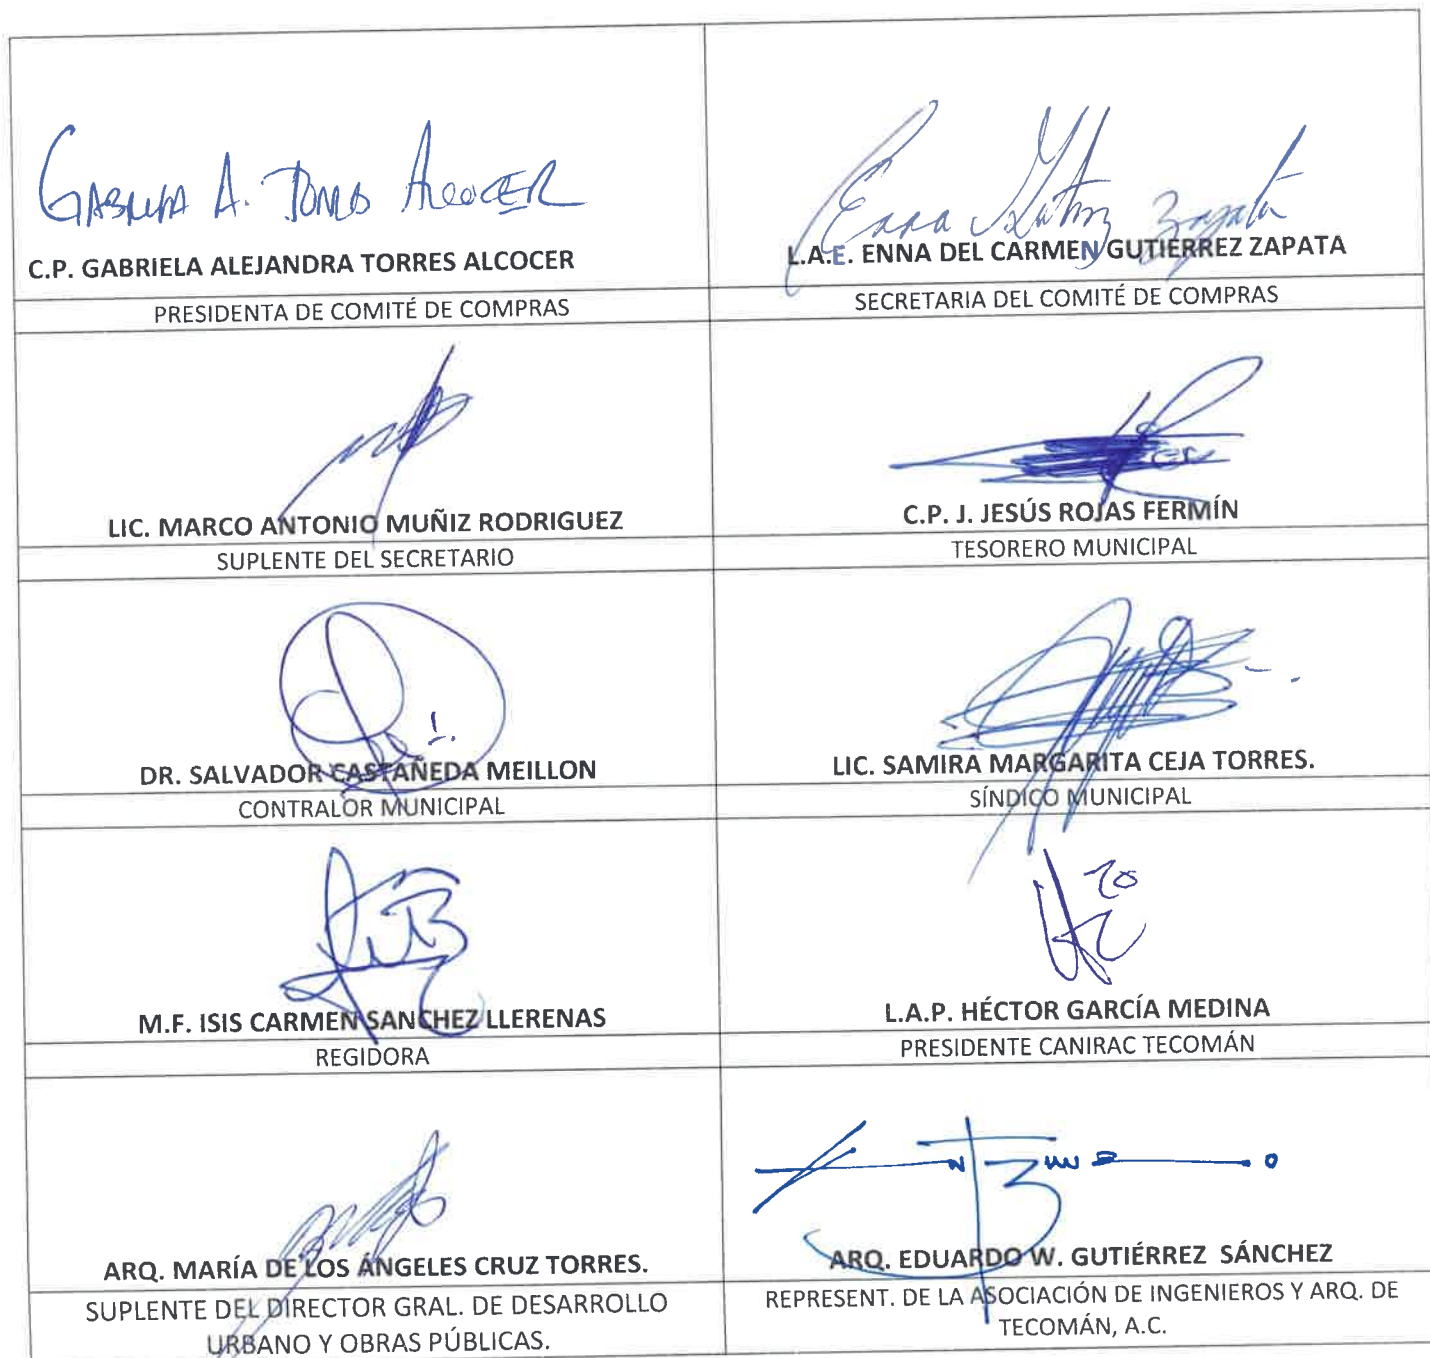 GABRIELA A. TORRES ALCOCER
Enna Gutierrez Zapata
C.P. GABRIELA ALEJANDRA TORRES ALCOCER
L.A.E. ENNA DEL CARMEN GUTIERREZ ZAPATA
PRESIDENTA DE COMITÉ DE COMPRAS
SECRETARIA DEL COMITÉ DE COMPRAS
LIC. MARCO ANTONIO MUÑIZ RODRIGUEZ
C.P. J. JESÚS ROJAS FERMÍN
SUPLENTE DEL SECRETARIO
TESORERO MUNICIPAL
DR. SALVADOR CASTAÑEDA MEILLON
LIC. SAMIRA MARGARITA CEJA TORRES.
CONTRALOR MUNICIPAL
SÍNDICO MUNICIPAL
M.F. ISIS CARMEN SANCHEZ LLERENAS
L.A.P. HÉCTOR GARCÍA MEDINA
REGIDORA
PRESIDENTE CANIRAC TECOMÁN
ARQ. MARÍA DE LOS ÁNGELES CRUZ TORRES.
ARQ. EDUARDO W. GUTIÉRREZ SÁNCHEZ
SUPLENTE DEL DIRECTOR GRAL. DE DESARROLLO
URBANO Y OBRAS PÚBLICAS.
REPRESENT. DE LA ASOCIACIÓN DE INGENIEROS Y ARQ. DE
TECOMÁN, A.C.